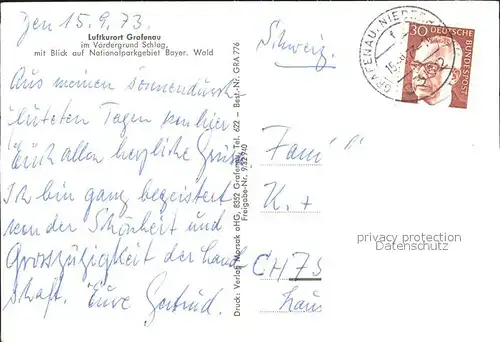 Zen 15.9.73.
Luftkurort Grafenau
im Vordergrund Schlag,
mit Blick auf Nationalparkgebiet Bayer. Wald
Aus meinen sonnendurch
fluteten Tagen von hier
Euch allen herzliche Grüsse
Ich bin ganz begeistert
von der Schönheit und
Grosszügigkeit der Land
schaft. Eure Gertrud.
Druck: Verlag oHG, 8352 Grafenau, Tel. 622 – Best.-Nr. GRA 776
Freigabe-Nr. 9/32940
Schweiz
30 DEUTSCHE BUNDESPOST
GRAFENAU
Fam
K. +
CH 75
Haus
privacy protection
Datenschutz